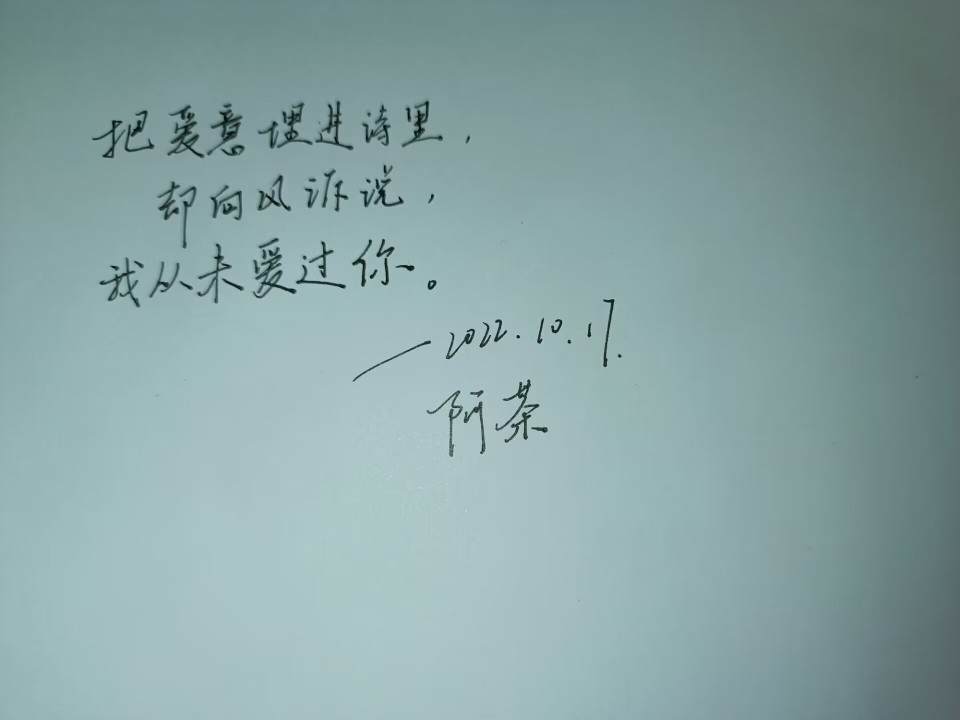 把爱意埋进诗里，
却向风诉说，
我从未爱过你。
—2022.10.17.
阿茶